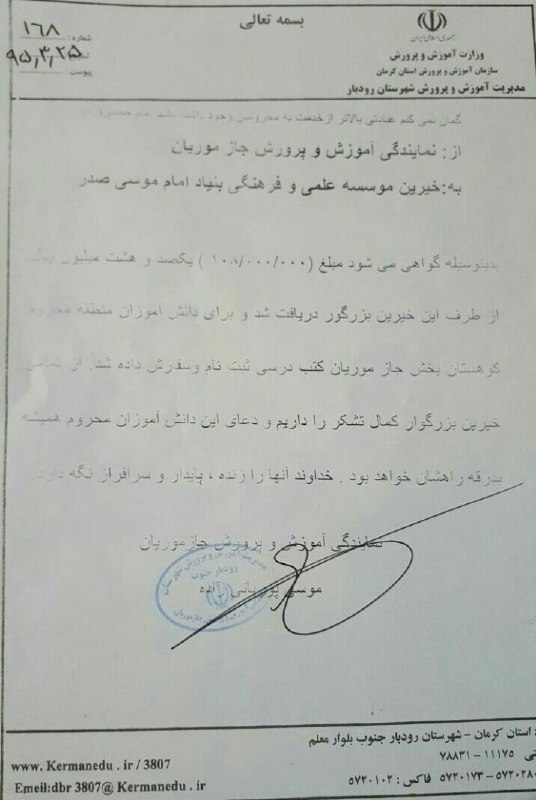 بسمه تعالی
جمهوری اسلامی ایران
وزارت آموزش و پرورش
سازمان آموزش و پرورش استان کرمان
مدیریت آموزش و پرورش شهرستان رودبار
شماره : ۱۶۸
۹۵,۳,۲۵
پیوست :
گمان نمی کنم عبادتی بالاتر از خدمت به محرومین وجود داشته باشد
از: نمایندگی آموزش و پرورش جاز موریان
به:خیرین موسسه علمی و فرهنگی بنیاد امام موسی صدر
بدینوسیله گواهی می شود مبلغ (۱۰۸/۰۰۰/۰۰۰ ) یکصد و هشت میلیون ریال
از طرف این خیرین بزرگور دریافت شد و برای دانش آموزان منطقه محروم
کوهستان بخش جاز موریان کتب درسی ثبت نام وسفارش داده شد. از تمامی
خیرین بزرگوار کمال تشکر را داریم و دعای این دانش آموزان محروم همیشه
بدرقه راهشان خواهد بود . خداوند آنها را زنده ، پایدار و سرافراز نگه دارد
نمایندگی آموزش و پرورش جازموریان
موسی
مدیریت آموزش و پرورش شهرستان
رودبار جنوب
استان کرمان - شهرستان رودبار جنوب بلوار معلم
۷۸۸۳۱ - ۱۱۱۷۵
۵۷۲۰۱۷۳ - ۵۷۲۰۲۸ فاکس : ۵۷۲۰۱۰۲
www. Kermanedu . ir / 3807
Emeil:dbr 3807@ Kermanedu . ir